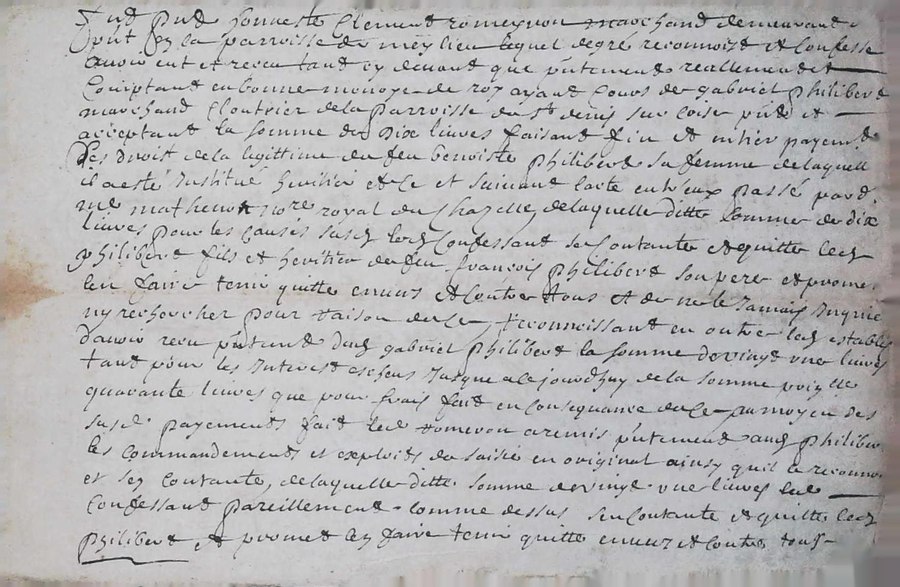 Fut pnt honneste Clement romeyuon marchand demeurant
pnt en la parroisse de meylieu lequel de gré reconnoist et Confesse
avoir eut et receu tant cy devant que pntement reallement et
Comptant en bonne monoye de roy ayant Cours de gabriel philibert
marchand Cloutrier de la parroisse de st denis sur Coise pnt et
acceptant la somme de Dix livres faisant fin et entier payemt
Des droit de la legittime de feu benoiste philibert sa femme de laquelle
il a esté Institué heritier et ce et suivant lacte entreux passé pard
me mathenot nore royal de Chazelle, de laquelle ditte somme de dix
livres pour les Causes susd led Confessant se Contante et quitte led
philibert fils et heritier de feu francois philibert son pere et promet
len faire tenir quitte envers et Contre tous et de ne le Jamais
ny rechercher pour raison de ce, reconnoissant en outre led establis
davoir receu pntement dud gabriel philibert la somme de vingt une livres
tant pour les Interest escheus Jusque a ce jourdhuy de la somme
quarante livres que pour frais fait en Consequance de ce au moyen des
susd payements fait led romeyuon a remis pntement aud philibert
les Commandements et exploits de saisie en original ainsy quil a reconnu
et sen contante, de laquelle ditte somme de vingt une livres led
Confessant pareillement comme dessus sen Contante et quitte led
philibert, et promet len faire tenir quitte envers et Contre tous